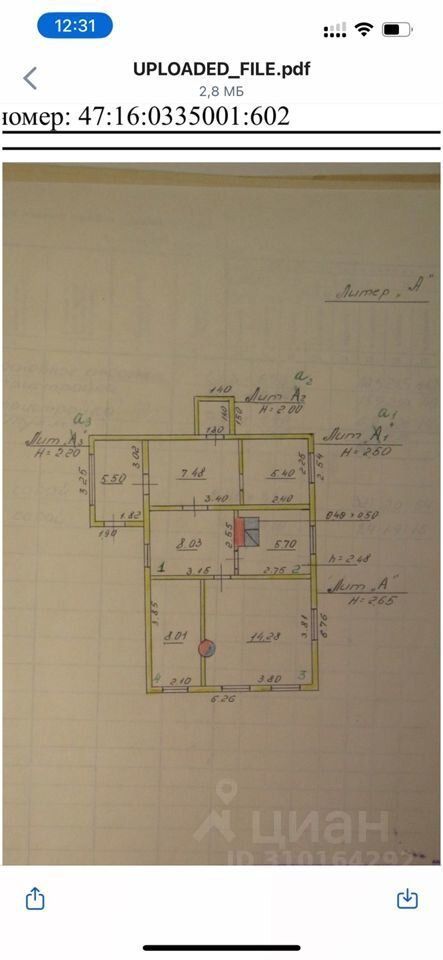 12:31
UPLOADED_FILE.pdf
2,8 МБ
номер: 47:16:0335001:602
Литер "А"
а2
140
Лит А2
H = 2.00
160
150
а3
Лит "А3"
H = 2.20
130
а1
Лит "А1"
H = 2.50
3.02
2.25
2.54
3.25
5.50
7.48
5.40
3.40
2.40
1.82
190
8.03
2.55
5.70
h = 2.48
1
3.15
2.75
2
Лит "А"
H = 2.65
3.85
3.81
6.76
8.01
14.28
4
2.10
3.80
3
6.26
циан
ID 310164292